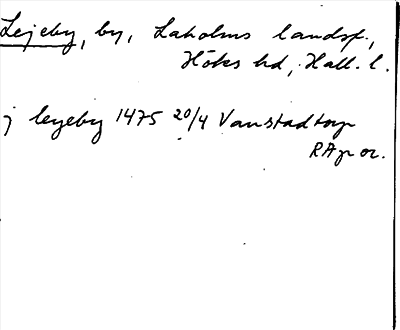 Lejeby, by, Laholms landsf.,
Höks hd, Hall. l.
j leyeby 1475 20/4 Vanstadtorp
RAp or.